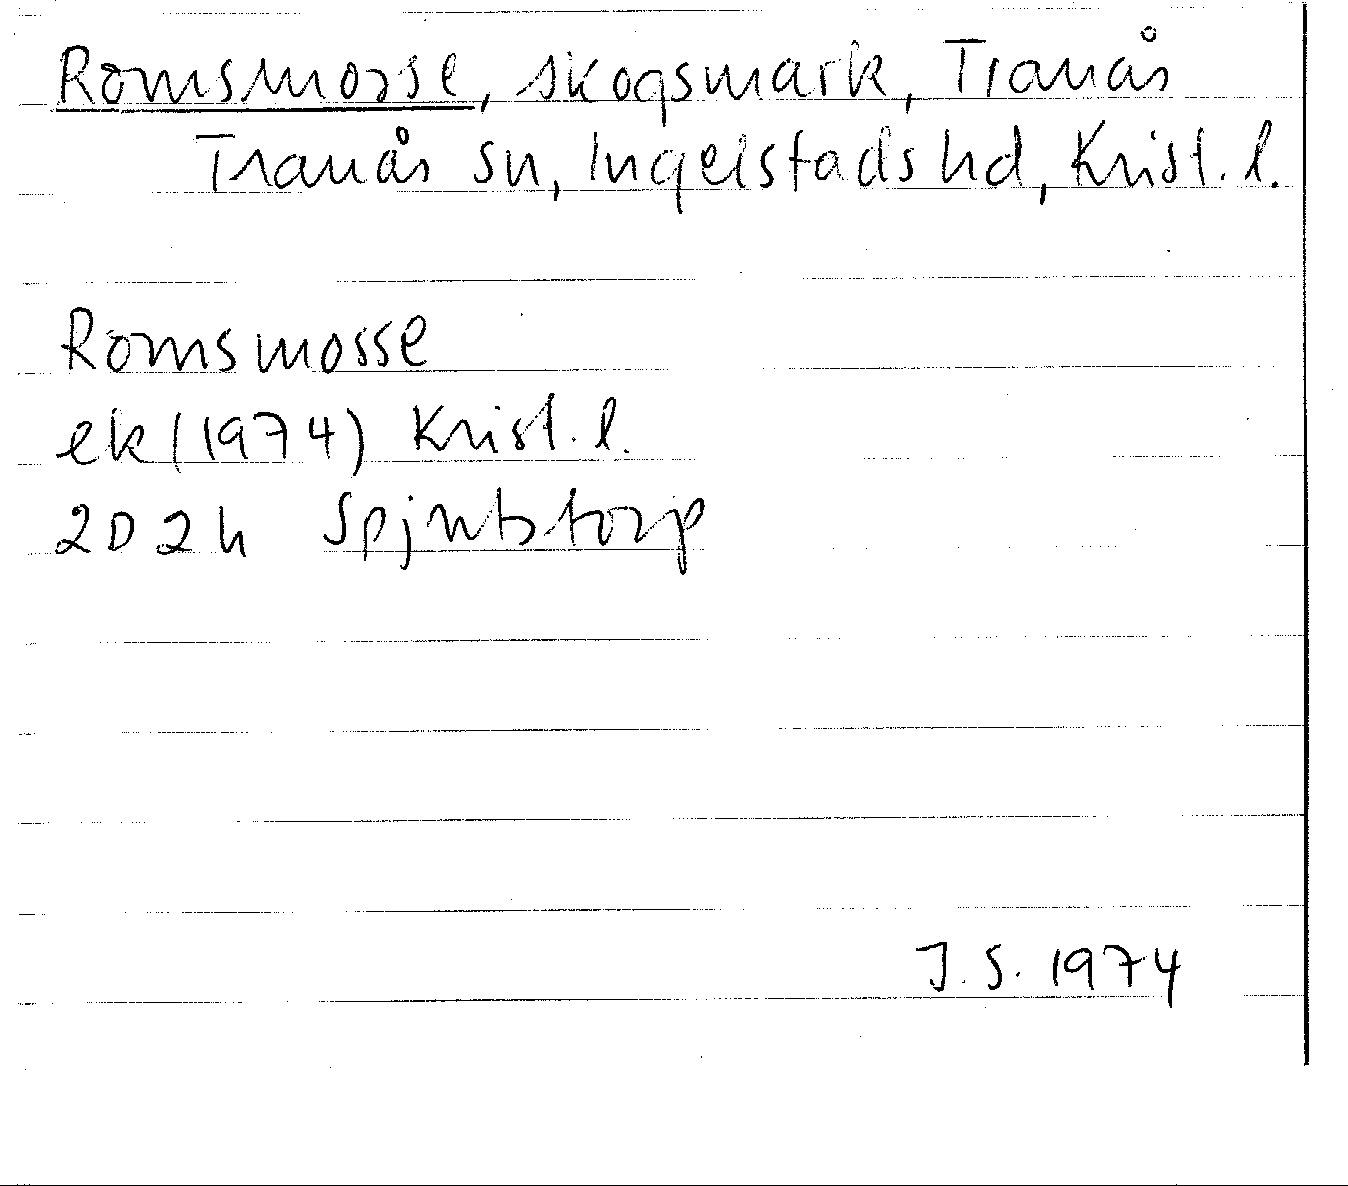 Romsmosse, skogsmark, Tranås
Tranås sn, Ingelstads hd, Krist. l.
Romsmosse
ek (1974) Krist. l.
2D 2h Spjutstorp
J. S. 1974